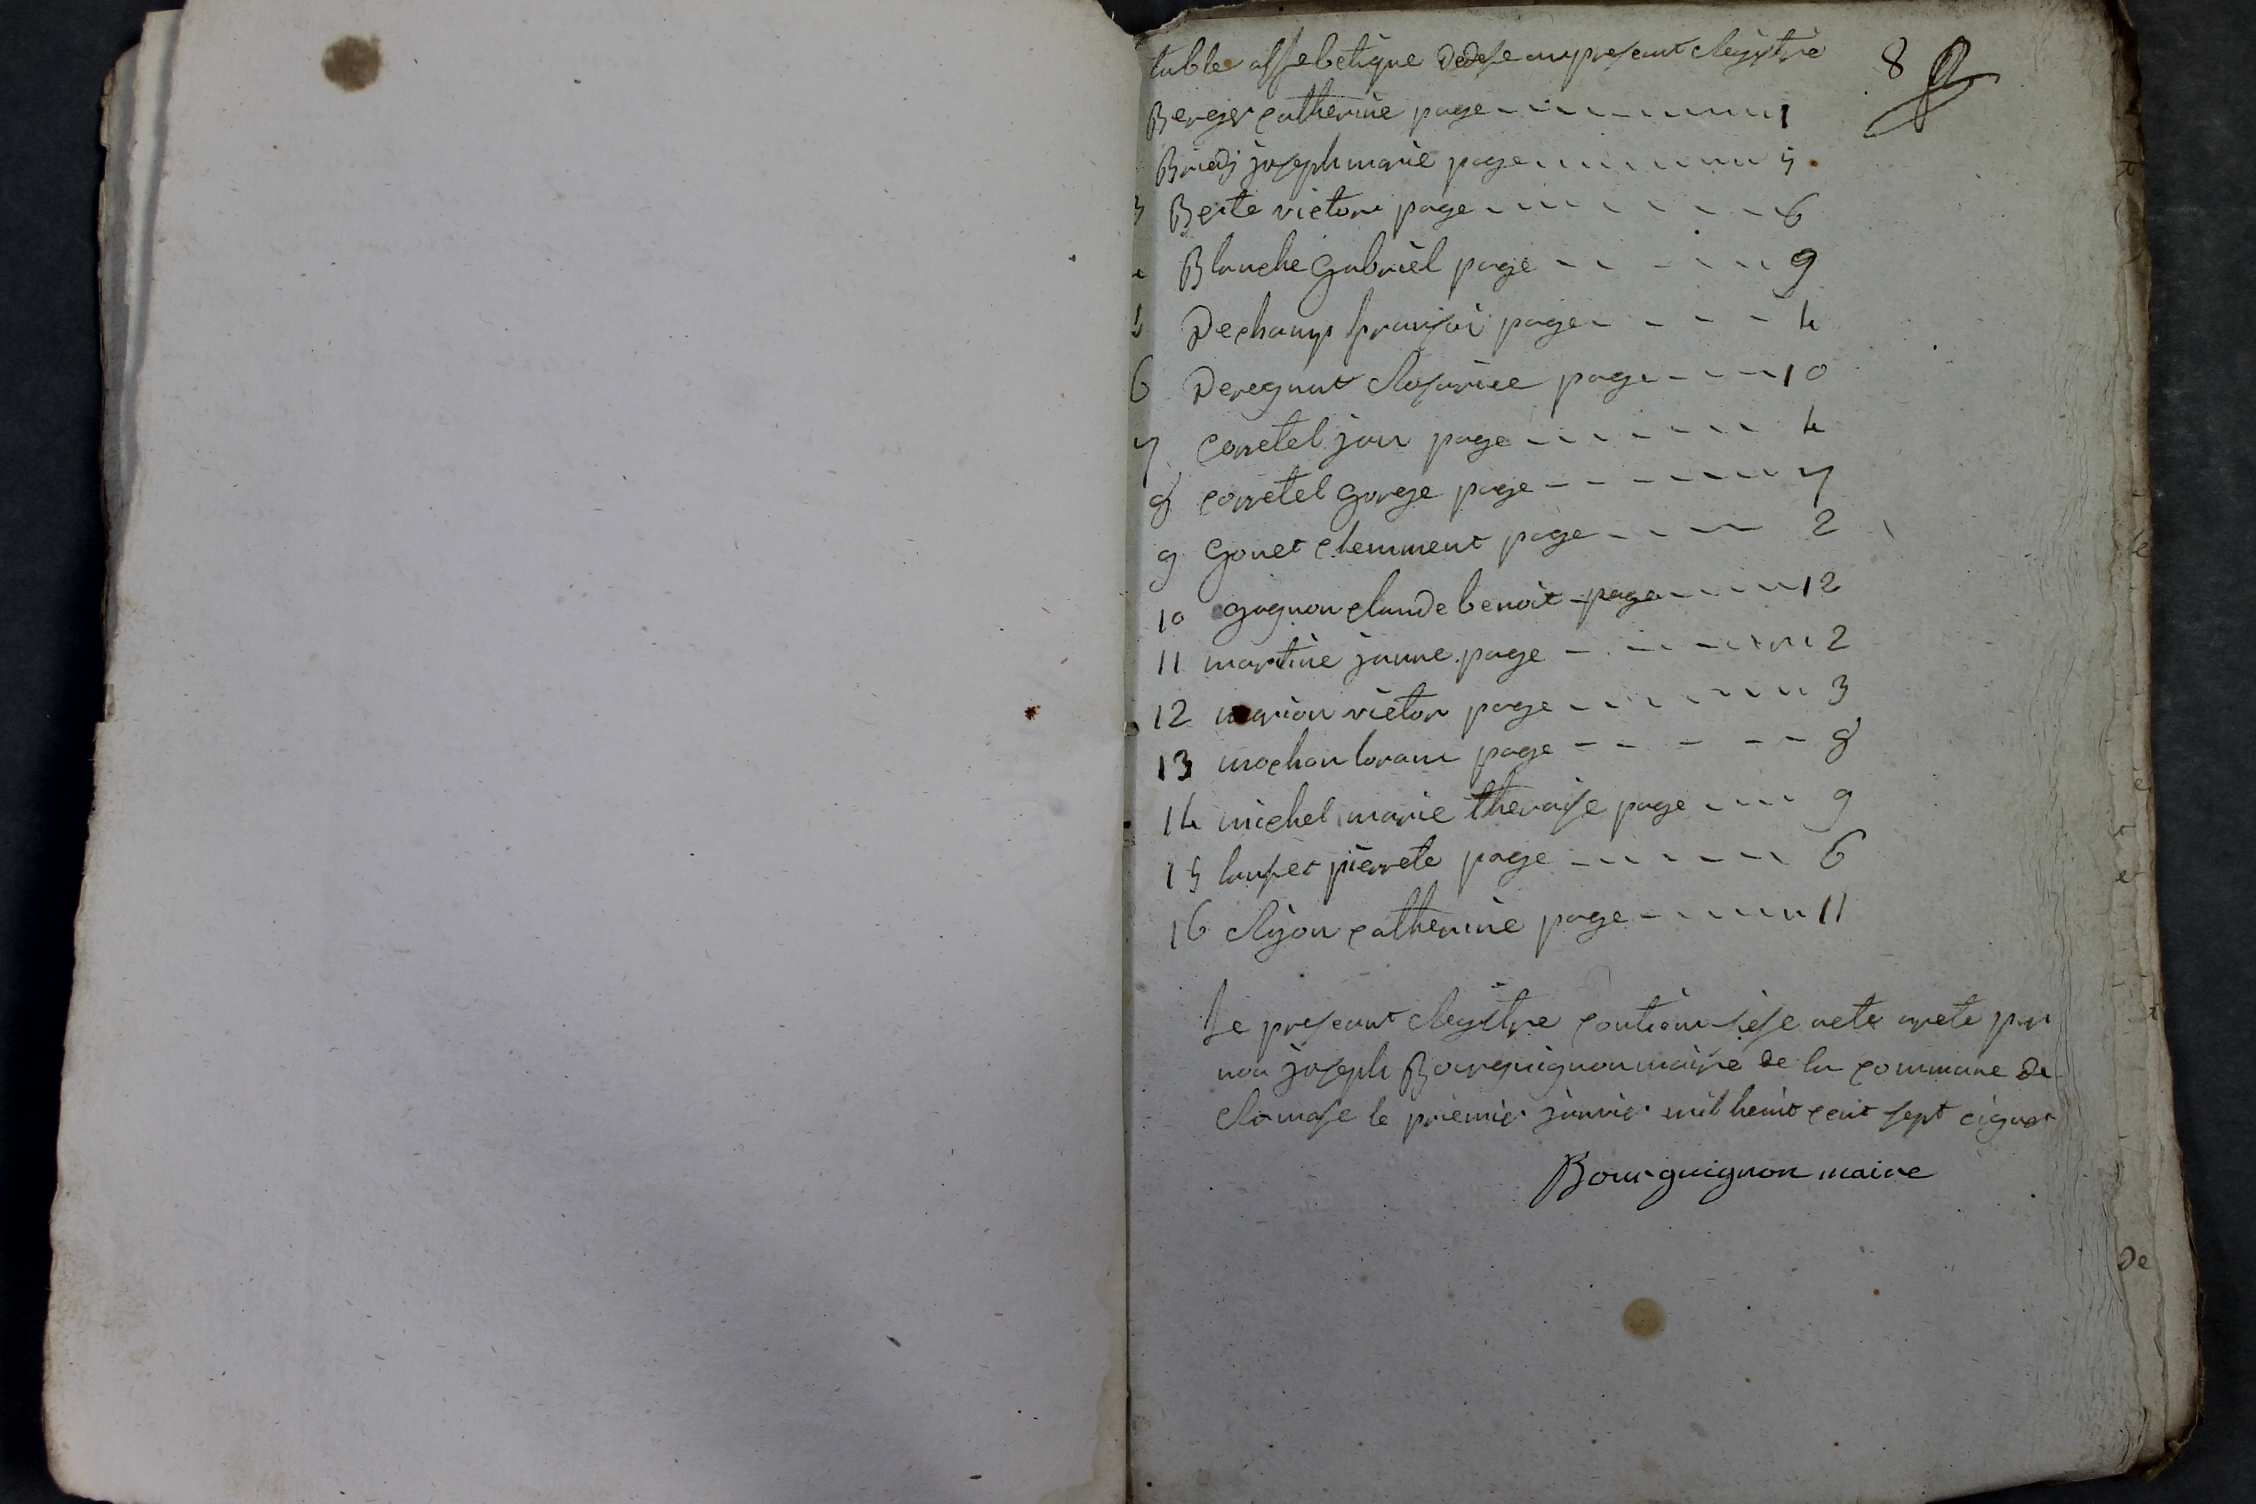 table alfebetique dedese au presant Registre 8
Berger catherine page 1
Briedj joseph marie page 5
3 Berte victore page 6
4 Blanche gabriel page 9
5 Dechamp fransoi page 4
6 Deregnant Rosariee page 10
7 corretel jan page 4
8 corretel gorge page 7
9 gonet clemment page 2
10 gagnon claude benoit page 12
11 martine janne page 2
12 marion victor page 3
13 mochan loran page 8
14 michel marie theraise page 9
15 lanser pierrete page 6
16 Rijon catherine page 11
Le presant Registre contiem sese acte arete par
nou joseph Bourguignon maire de la commune de
Romase le premier janvier mil heuit cent sept cignet
Bourguignon maire